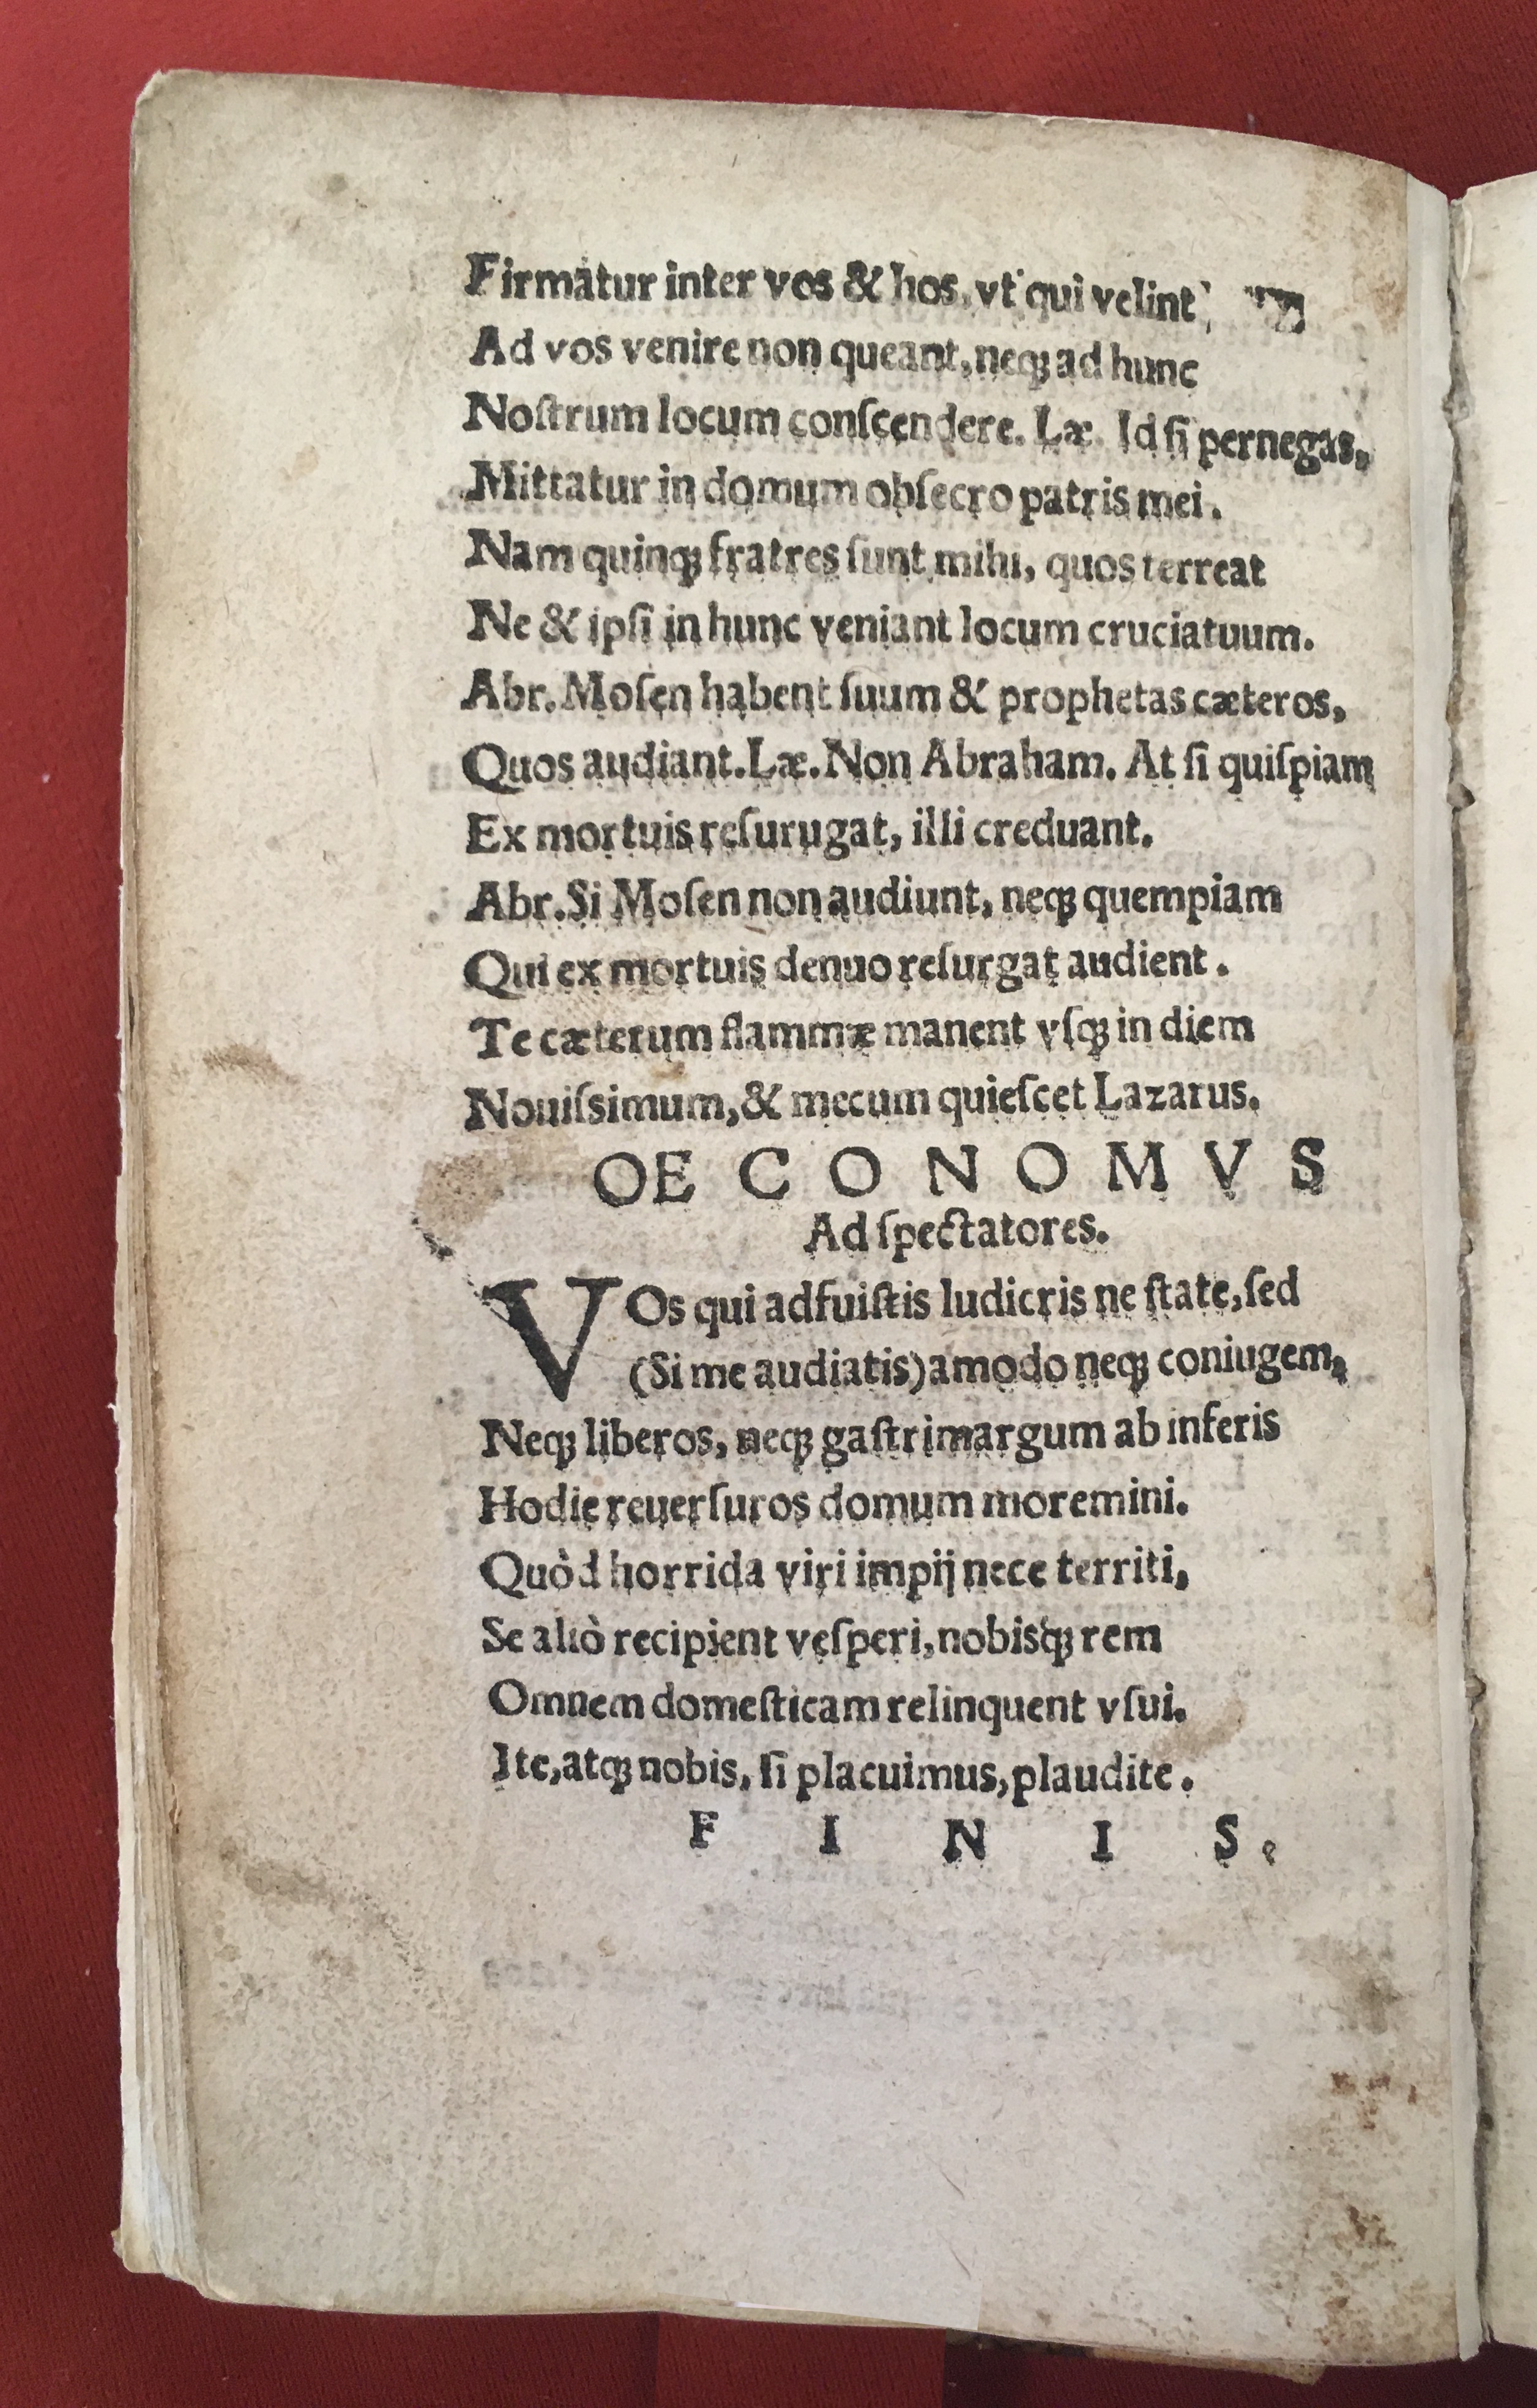 Firmãtur inter vos & hos, vt qui velint
Ad vos venire non queant, neqꝫ ad hunc
Noſtrum locum conſcendere. Læ. Id ſi pernegas,
Mittatur in domum obſecro patris mei.
Nam quinqꝫ fratres ſunt mihi, quos terreat
Ne & ipſi in hunc veniant locum cruciatuum.
Abr. Moſen habent ſuum & prophetas cæteros,
Quos audiant. Læ. Non Abraham. At ſi quiſpiam
Ex mortuis reſurugat, illi creduant.
Abr. Si Moſen non audiunt, neqꝫ quempiam
Qui ex mortuis denuo reſurgat audient.
Te cæterum flammæ manent vſqꝫ in diem
Nouiſsimum, & mecum quieſcet Lazarus.
OE C O N O M V S
Ad ſpectatores.
VOs qui adfuiſtis ludicris ne ſtate, ſed
(Si me audiatis) amodo neqꝫ coniugem,
Neqꝫ liberos, neqꝫ gaſtrimargum ab inferis
Hodie reuerſuros domum moremini.
Quòd horrida viri impij nece territi,
Se aliò recipient veſperi, nobisq́ꝫ rem
Omnem domeſticam relinquent vſui.
Ite, atqꝫ nobis, ſi placuimus, plaudite.
F I N I S.